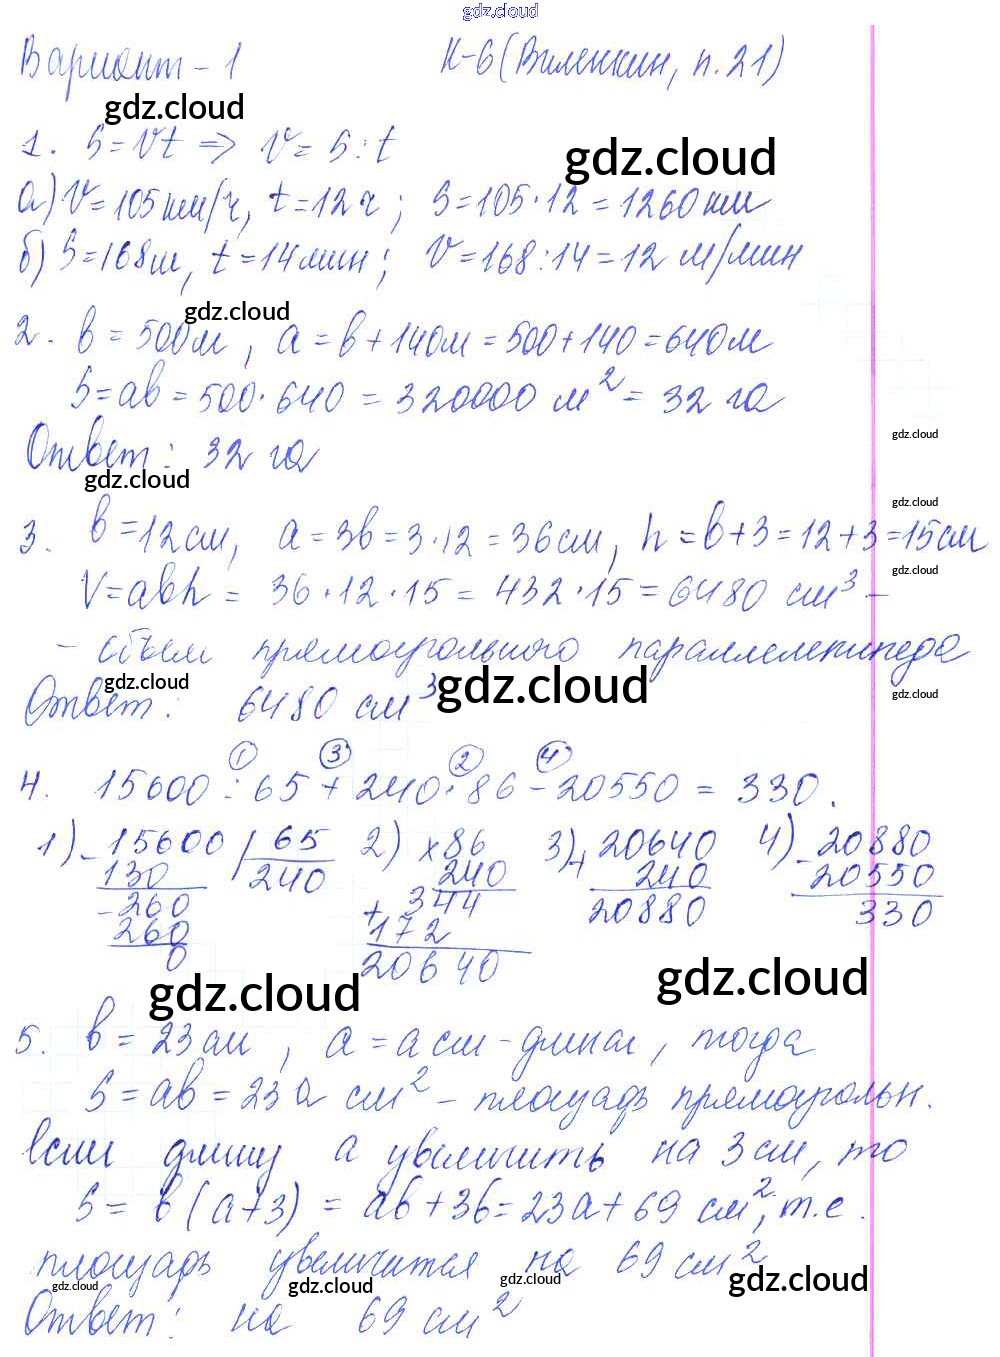 gdz.cloud
Вариант - 1 К-6 (Виленкин, п. 21)
gdz.cloud
1. S = vt ⇒ v = S : t
gdz.cloud
а) v = 105 км/ч, t = 12 ч ; S = 105 · 12 = 1260 км
б) S = 168 м, t = 14 мин ; v = 168 : 14 = 12 м/мин
gdz.cloud
2. b = 500 м, a = b + 140 м = 500 + 140 = 640 м
S = ab = 500 · 640 = 320000 м² = 32 га
gdz.cloud
Ответ: 32 га
gdz.cloud
gdz.cloud
3. b = 12 см, a = 3b = 3 · 12 = 36 см, h = b + 3 = 12 + 3 = 15 см
gdz.cloud
V = abh = 36 · 12 · 15 = 432 · 15 = 6480 см³ –
– объем прямоугольного параллелепипеда
gdz.cloud gdz.cloud gdz.cloud
Ответ: 6480 см³
① ③ ② ④
4. 15600 : 65 + 240 · 86 – 20550 = 330.
1) – 15600 | 65 2) × 86 3) + 20640 4) – 20880
130 240 240 240 20550
– 260 + 344 20880 330
260 172
0 20640
gdz.cloud gdz.cloud
5. b = 23 см, a = a см – длина, тогда
S = ab = 23a см² – площадь прямоугольн.
Если длину a увеличить на 3 см, то
S = b(a+3) = ab + 3b = 23a + 69 см², т.е.
площадь увеличится на 69 см²
gdz.cloud gdz.cloud gdz.cloud gdz.cloud
Ответ: на 69 см²